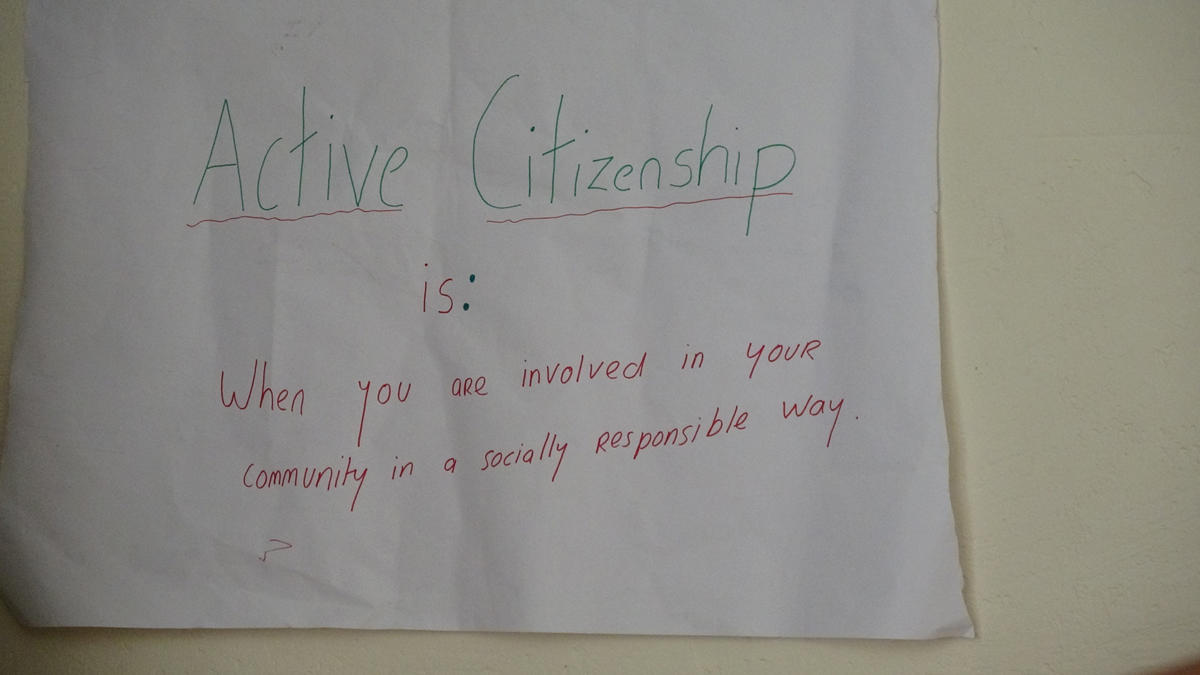 Active Citizenship
is:
When you are involved in your
community in a socially Responsible way.